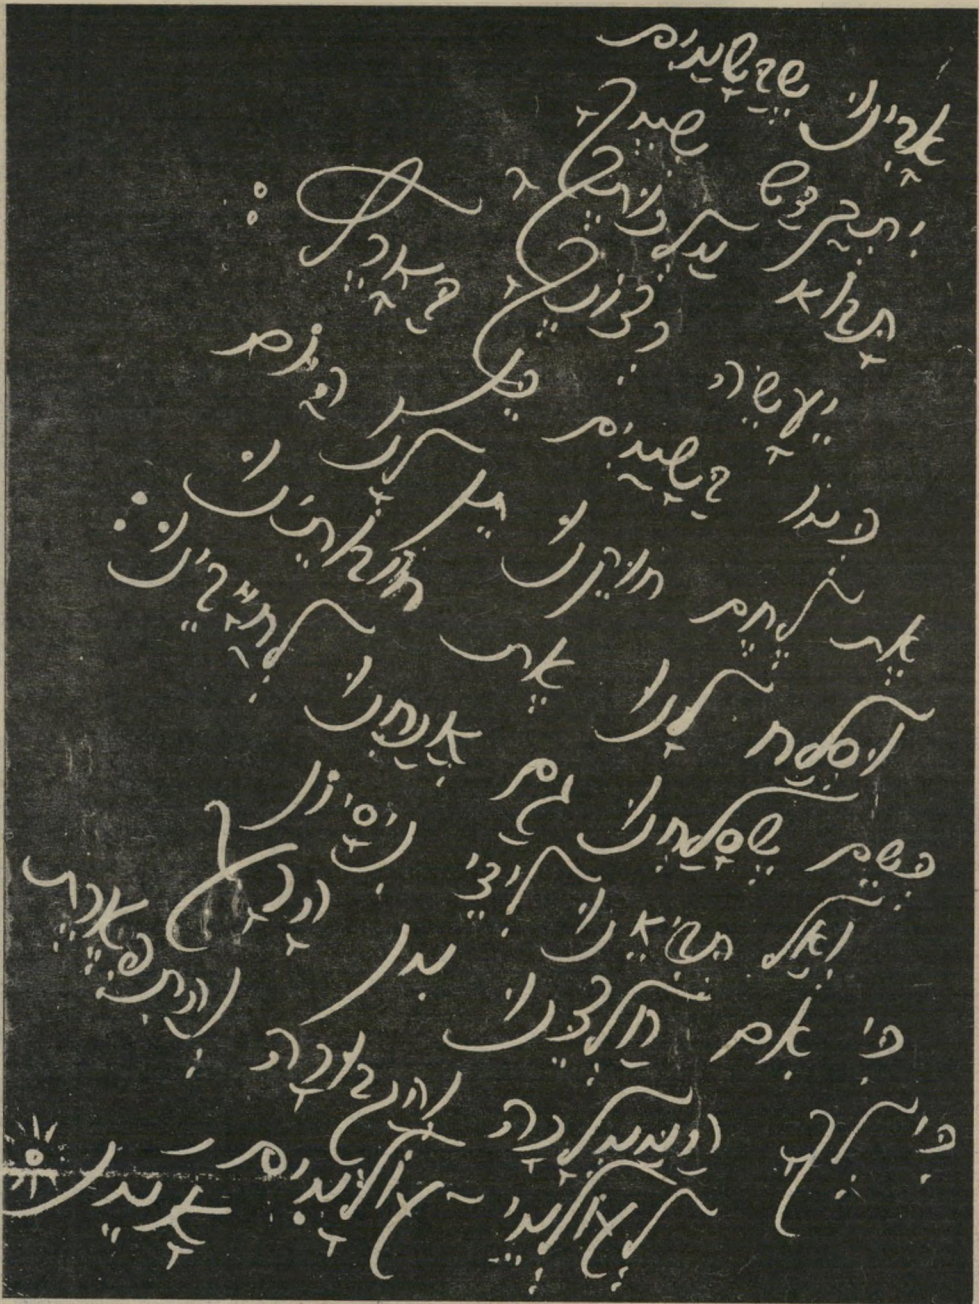 אבינו שבשמים
יתקדש שמיך
תבוא מלכותיך
יעשה רצוניך בארץ :
כמו בשמים כן
את לחם חוקנו תן לנו היום
וסלח לנו את חובותינו
כשם שסלחנו גם אנחנו לחייבינו :
ואל תביאנו לידי ניסיון
כי אם חלצנו מן הרע
כי לך הממלכה והגבורה והתפארת
לעולמי-עולמים - אמן